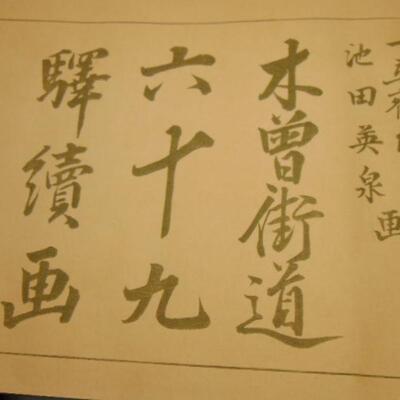 池田英泉
画
木曾街道
六十九
驛續画